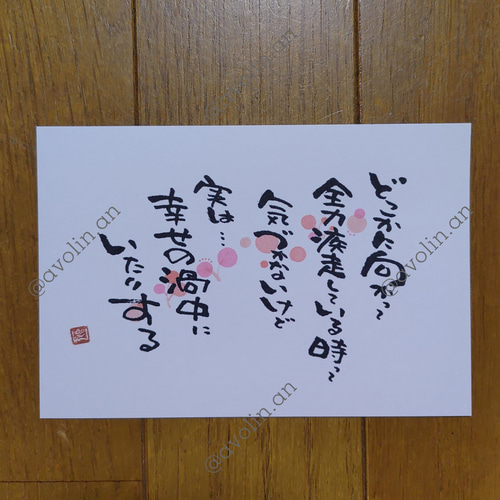 どこかに向かって
全力疾走している時って
気づかないけど
実は…
幸せの渦中に
いたりする
@avolin.an
@avolin.an
@avolin.an
@avolin.an
@avolin.an